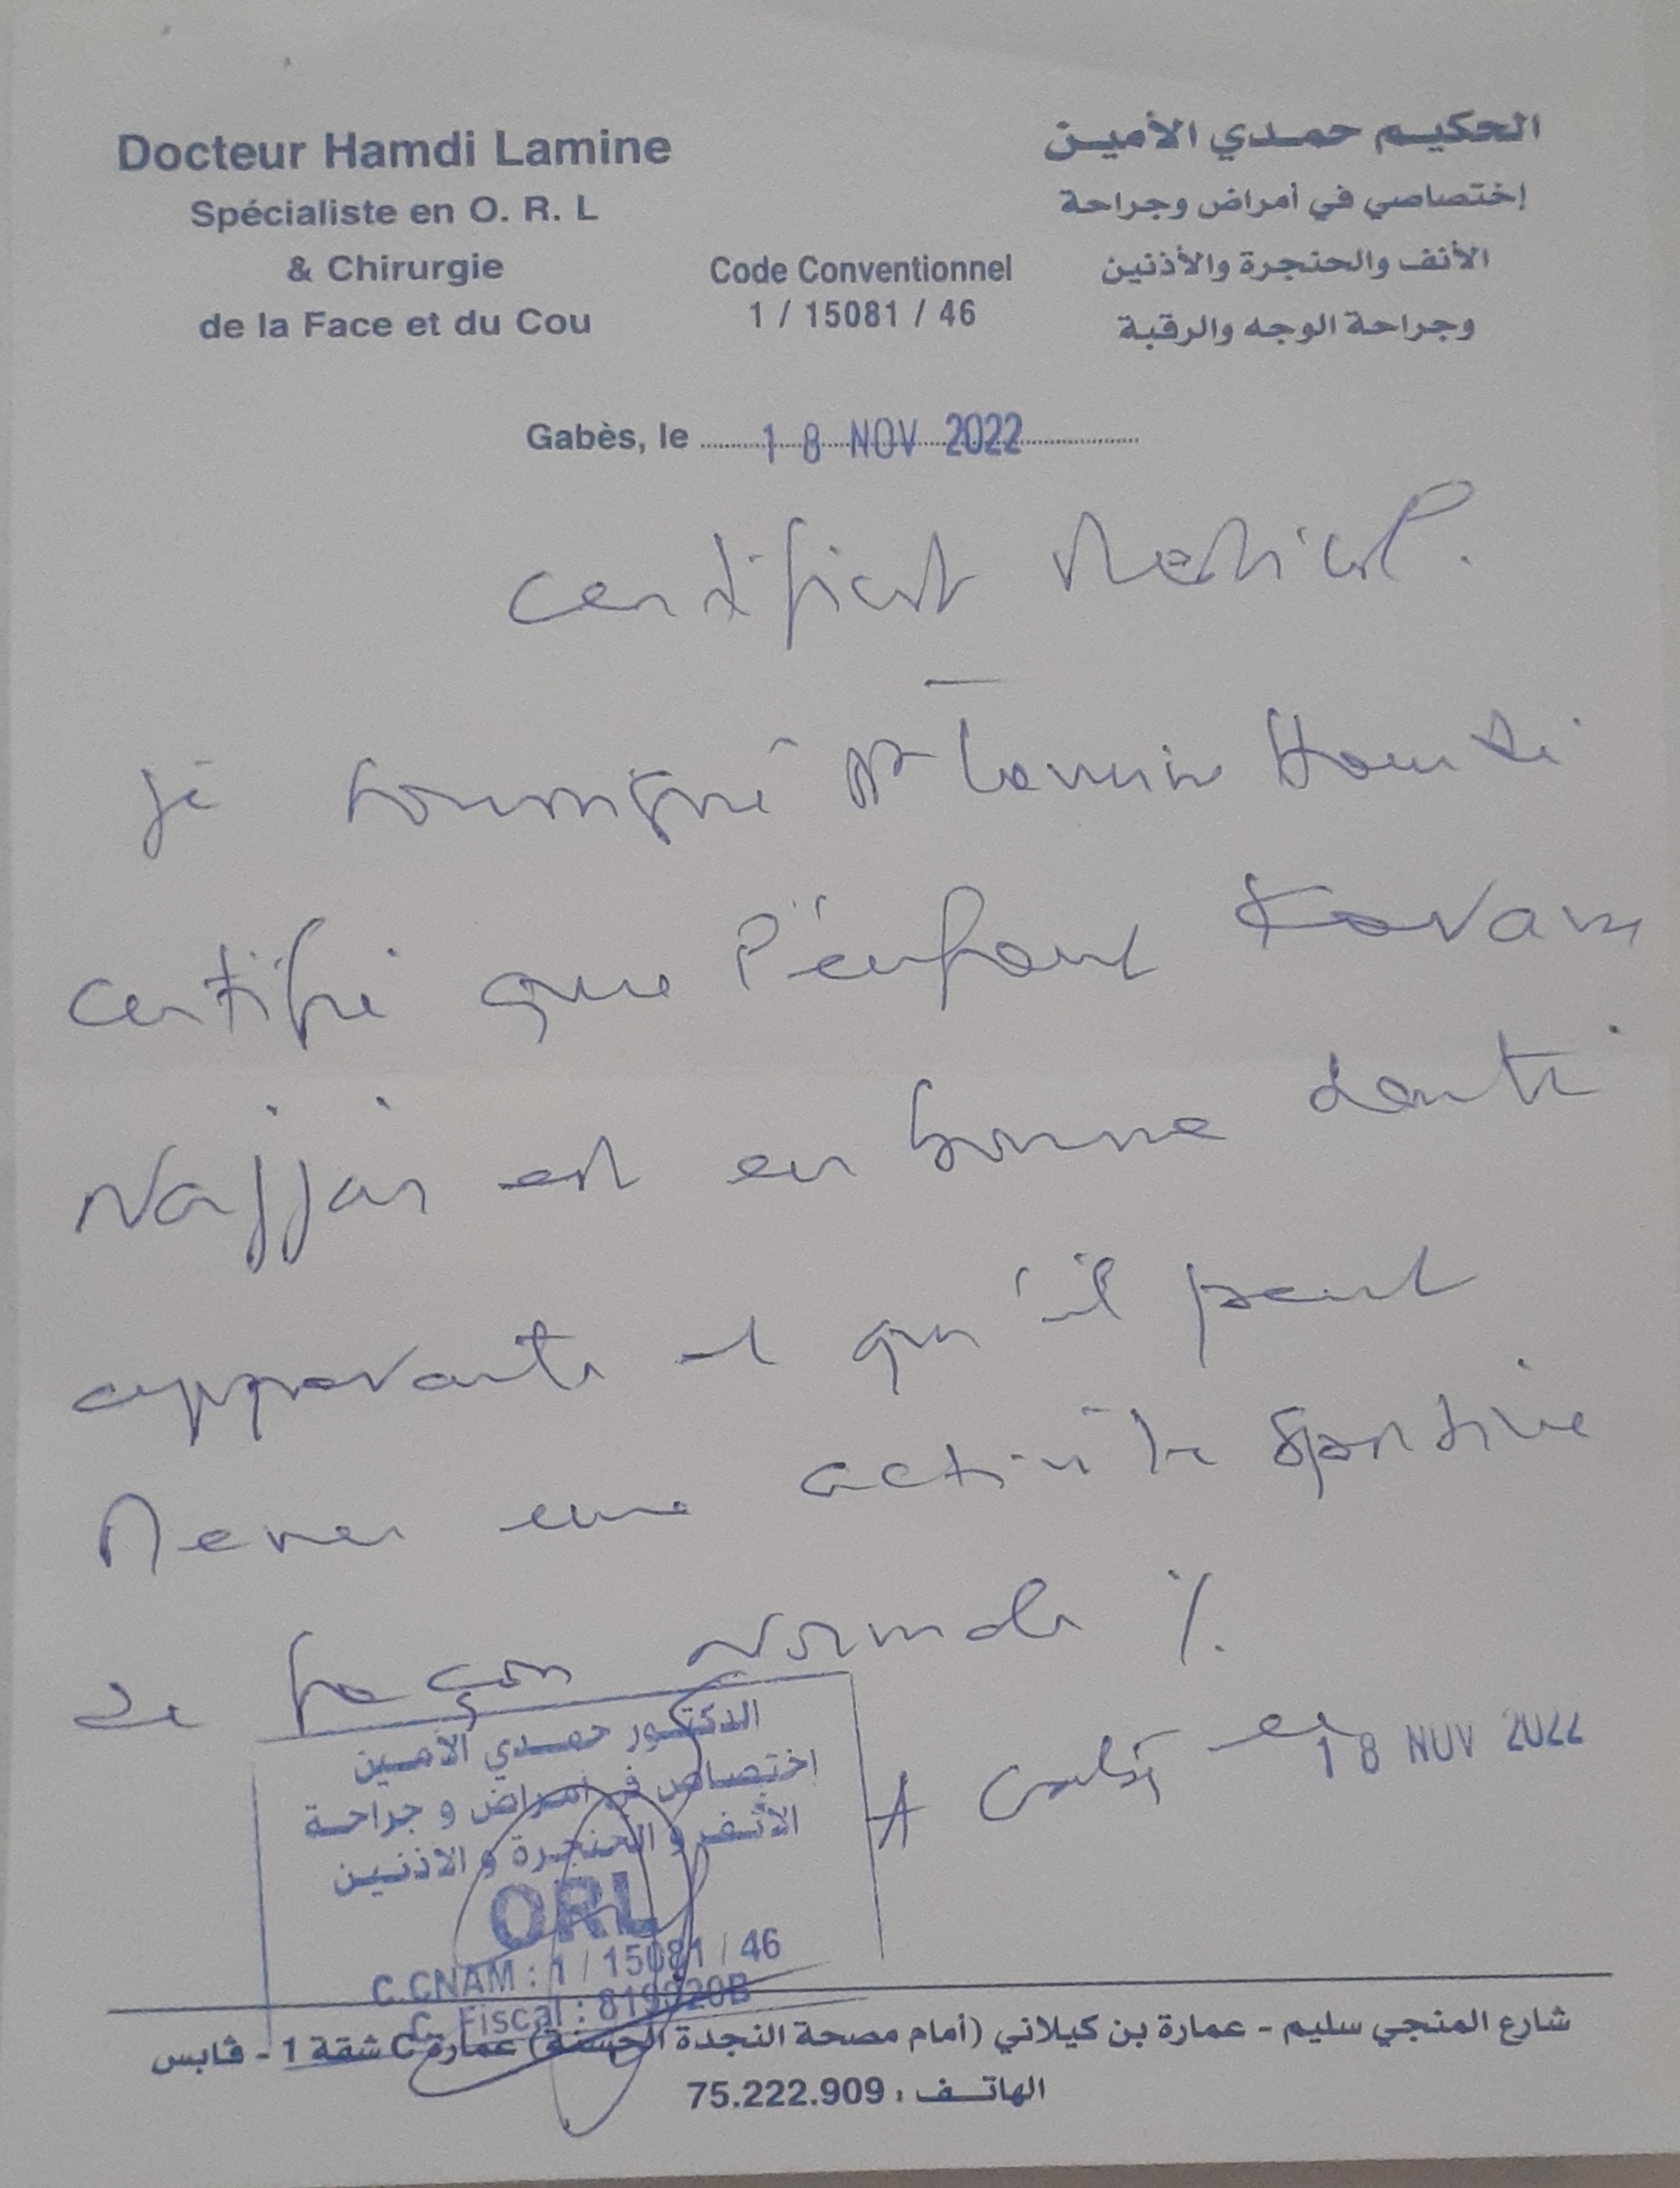 Docteur Hamdi Lamine
Spécialiste en O. R. L
& Chirurgie
de la Face et du Cou
Code Conventionnel
1 / 15081 / 46
الحكيم حمدي الأمين
إختصاصي في أمراض وجراحة
الأنف والحنجرة والأذنين
وجراحة الوجه والرقبة
Gabès, le 18 NOV 2022
certificat Medical.
je soussigné Dr Lamine Hamdi
certifie que l'enfant
Najjar est en bonne santé
apparente et qu'il peut
Mener une activité sportive
de façon Normale ٪.
الدكتور حمدي الأمين
اختصاص في امراض و جراحة
الأنف و الحنجرة و الاذنين
ORL
C.CNAM : 1 / 15081 / 46
C. Fiscal :
A Gabès le 18 NOV 2022
شارع المنجي سليم - عمارة بن كيلاني (أمام مصحة النجدة الحسنة) عمارة C شقة 1 - قابس
الهاتف : 75.222.909